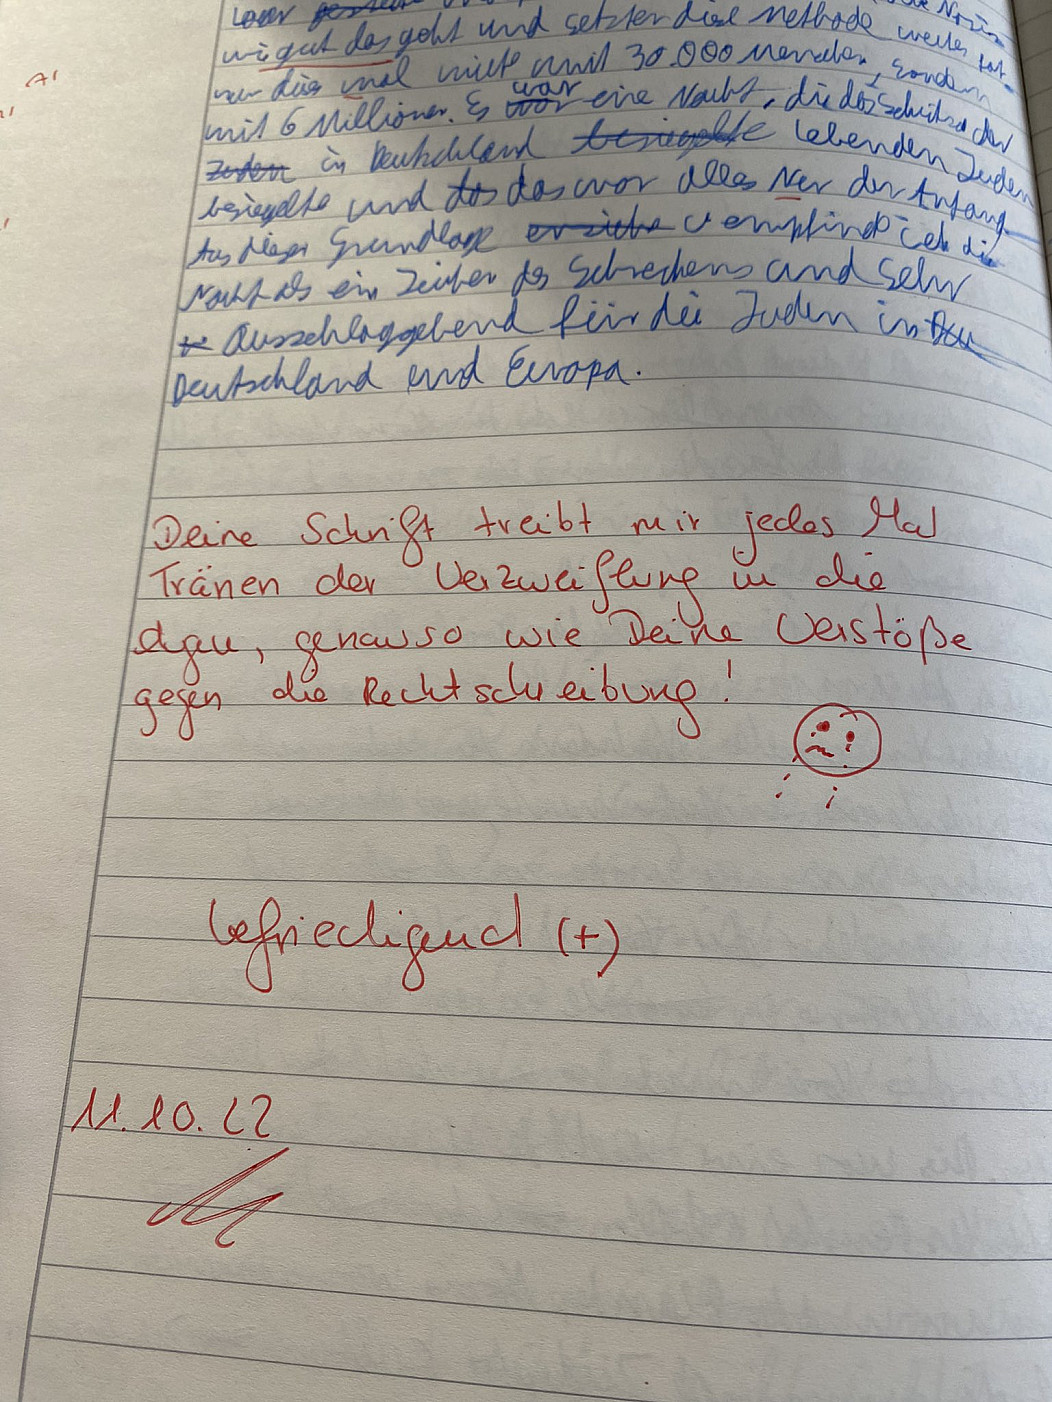 A1
wie gut das geht und setzten diese Methode weiter fort
nur dies mal nicht mit 30.000 Menschen, sondern
mit 6 Millionen. Es war eine Nacht, die das Schicksal der
Juden in Deutschland besiegelte lebenden Juden
besiegelte und das das war alles Nur der Anfang
Aus dieser Grundlage empfinde ich die
Nacht als ein Zeichen des Schreckens und sehr
Ausschlaggebend für die Juden in
Deutschland und Europa.
Deine Schrift treibt mir jedes Mal
Tränen der Verzweiflung in die
Augen, genauso wie Deine Verstöße
gegen die Rechtschreibung!
befriedigend (+)
11.10.22